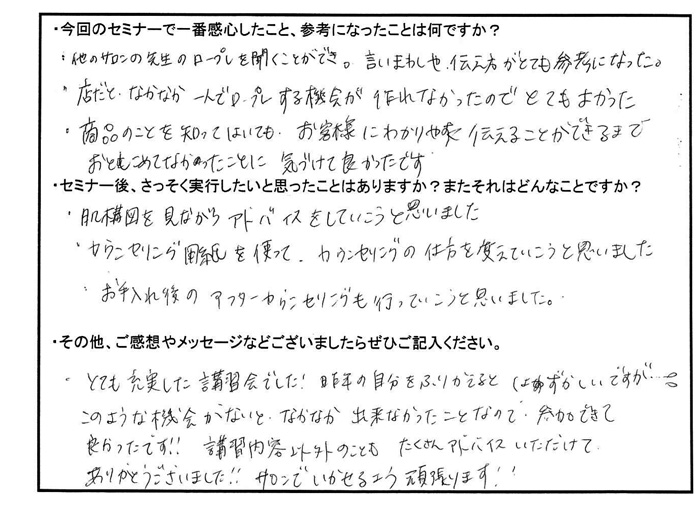 ・今回のセミナーで一番感心したこと、参考になったことは何ですか？
・他のサロンの先生のロープレを聞くことができ。言いまわしや、伝え方がとても参考になった。
・店だと、なかなか一人でロープレする機会が作れなかったのでとてもよかった
・商品のことを知ってはいても、お客様にわかりやすく伝えることができるまで
おとしこめてなかったことに気づけて良かったです
・セミナー後、さっそく実行したいと思ったことはありますか？またそれはどんなことですか？
・肌構図を見ながらアドバイスをしていこうと思いました
・カウンセリング用紙を使って、カウンセリングの仕方を変えていこうと思いました
・お手入れ後のアフターカウンセリングも行っていこうと思いました。
・その他、ご感想やメッセージなどございましたらぜひご記入ください。
・とても充実した講習会でした！昨年の自分をふりかえると はずかしいですが…。
このような機会がないと、なかなか出来なかったことなので、参加できて
良かったです!! 講習内容以外のことも たくさんアドバイスいただけて
ありがとうございました!! サロンでいかせるよう頑張ります!!